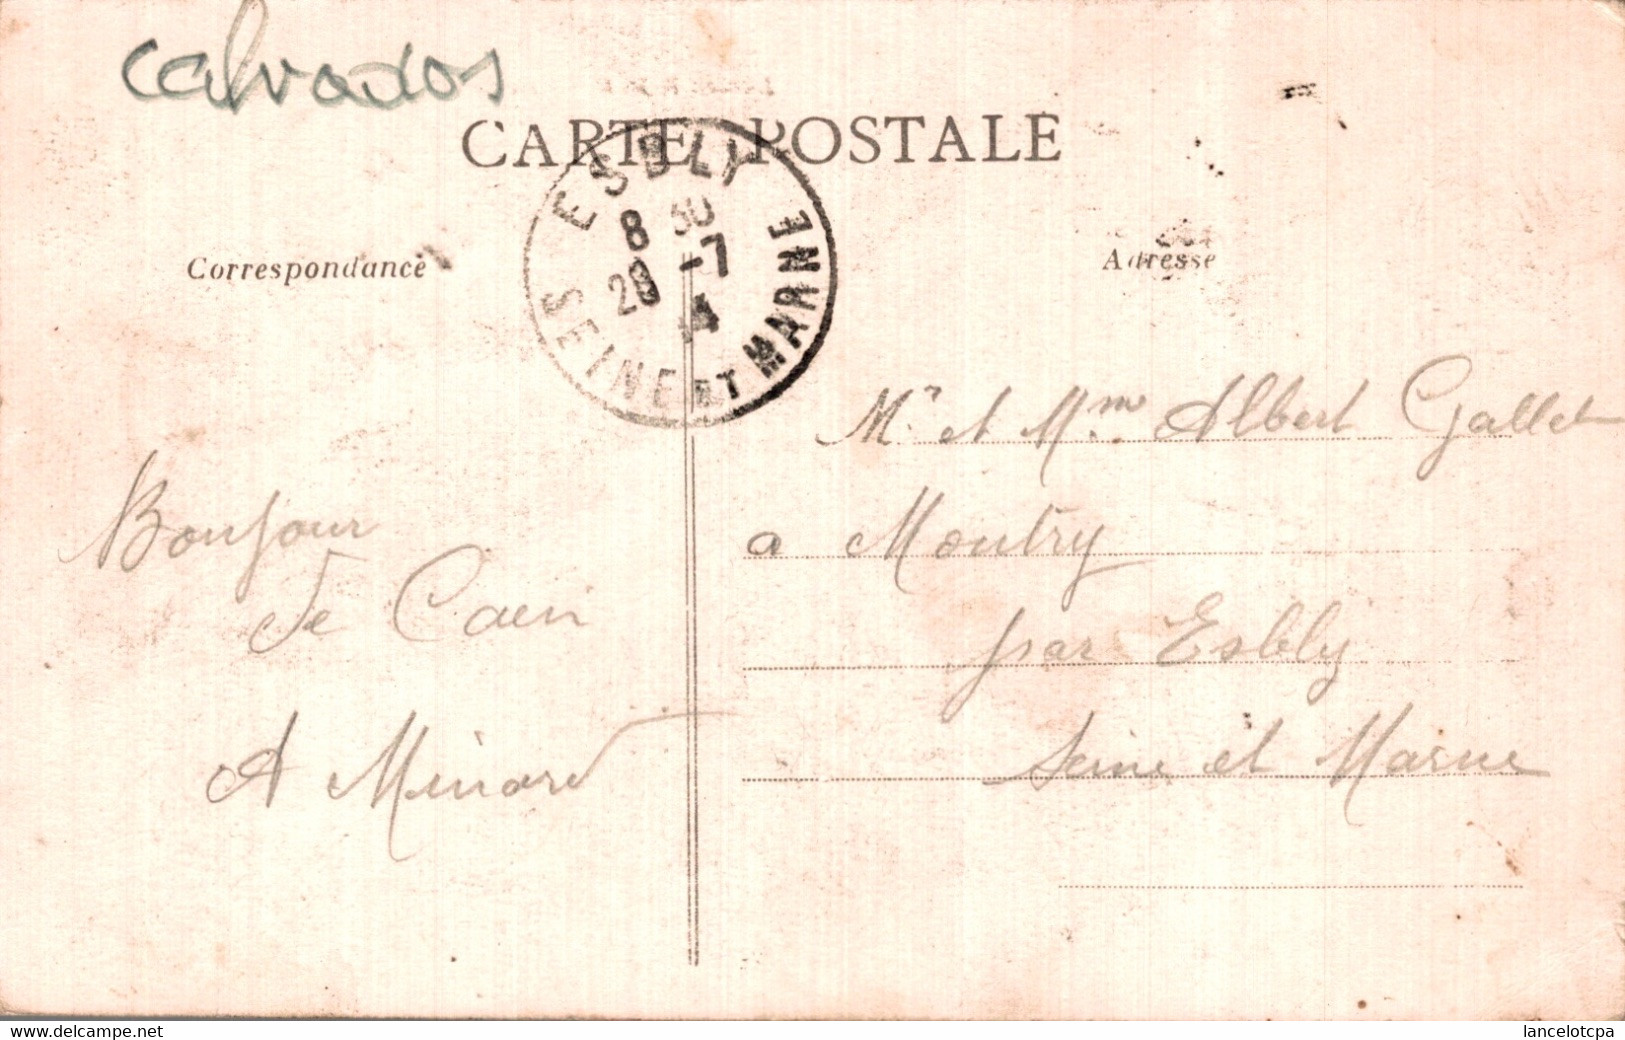 Calvados
CARTE POSTALE
ESBLY
8 30
28 -7
14
SEINE ET MARNE
Correspondance
Adresse
Mr et Mme Albert Gallet
a Montry
par Esbly
Seine et Marne
Bonjour
de Caen
A Minard
www.delcampe.net
lancelotcpa